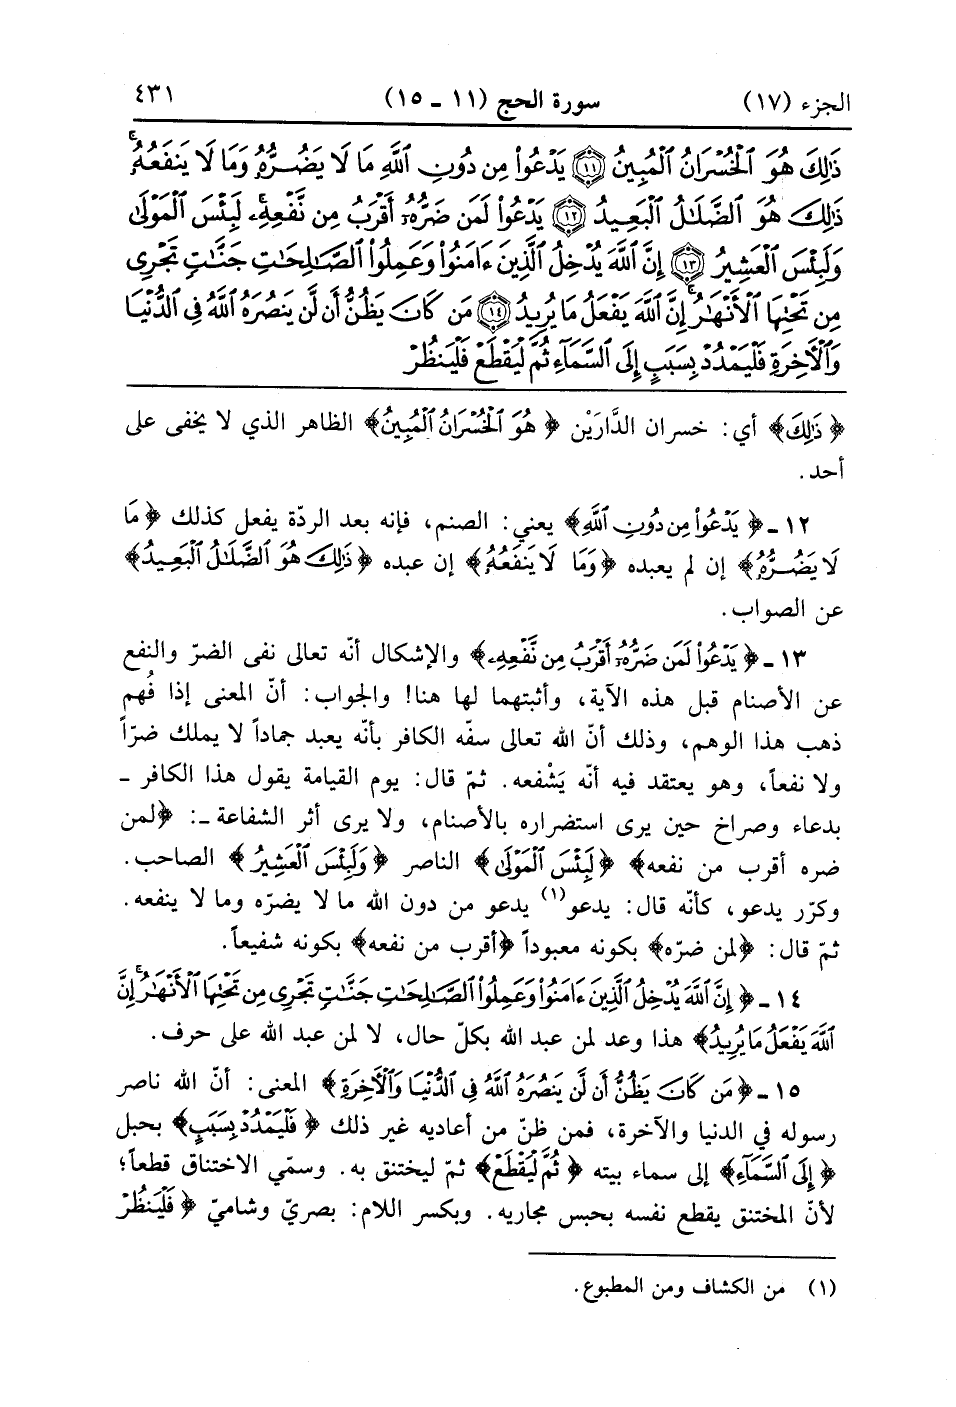 الجزء (١٧)
سورة الحج (١١ ـ ١٥)
٤٣١
ذَٰلِكَ هُوَ ٱلْخُسْرَانُ ٱلْمُبِينُ ١١ يَدْعُوا۟ مِن دُونِ ٱللَّهِ مَا لَا يَضُرُّهُۥ وَمَا لَا يَنفَعُهُۥۚ
ذَٰلِكَ هُوَ ٱلضَّلَٰلُ ٱلْبَعِيدُ ١٢ يَدْعُوا۟ لَمَن ضَرُّهُۥٓ أَقْرَبُ مِن نَّفْعِهِۦۚ لَبِئْسَ ٱلْمَوْلَىٰ
وَلَبِئْسَ ٱلْعَشِيرُ ١٣ إِنَّ ٱللَّهَ يُدْخِلُ ٱلَّذِينَ ءَامَنُوا۟ وَعَمِلُوا۟ ٱلصَّٰلِحَٰتِ جَنَّٰتٍ تَجْرِى
مِن تَحْتِهَا ٱلْأَنْهَٰرُۚ إِنَّ ٱللَّهَ يَفْعَلُ مَا يُرِيدُ ١٤ مَن كَانَ يَظُنُّ أَن لَّن يَنصُرَهُ ٱللَّهُ فِى ٱلدُّنْيَا
وَٱلْءَاخِرَةِ فَلْيَمْدُدْ بِسَبَبٍ إِلَى ٱلسَّمَآءِ ثُمَّ لْيَقْطَعْ فَلْيَنظُرْ
﴿ذَٰلِكَ﴾ أي: خسران الدَّارَيْن ﴿هُوَ ٱلْخُسْرَانُ ٱلْمُبِينُ﴾ الظاهر الذي لا يخفى على
أحد.
١٢ ـ ﴿يَدْعُوا۟ مِن دُونِ ٱللَّهِ﴾ يعني: الصنم، فإنه بعد الردّة يفعل كذلك ﴿مَا
لَا يَضُرُّهُۥ﴾ إن لم يعبده ﴿وَمَا لَا يَنفَعُهُۥ﴾ إن عبده ﴿ذَٰلِكَ هُوَ ٱلضَّلَٰلُ ٱلْبَعِيدُ﴾
عن الصواب.
١٣ ـ ﴿يَدْعُوا۟ لَمَن ضَرُّهُۥٓ أَقْرَبُ مِن نَّفْعِهِۦ﴾ والإشكال أنّه تعالى نفى الضرّ والنفع
عن الأصنام قبل هذه الآية، وأثبتهما لها هنا! والجواب: أنّ المعنى إذا فُهم
ذهب هذا الوهم، وذلك أنّ الله تعالى سفّه الكافر بأنّه يعبد جماداً لا يملك ضرّاً
ولا نفعاً، وهو يعتقد فيه أنّه يَشْفعه. ثمّ قال: يوم القيامة يقول هذا الكافر ـ
بدعاء وصراخ حين يرى استضراره بالأصنام، ولا يرى أثر الشفاعة ـ: ﴿لمن
ضره أقرب من نفعه﴾ ﴿لَبِئْسَ ٱلْمَوْلَىٰ﴾ الناصر ﴿وَلَبِئْسَ ٱلْعَشِيرُ﴾ الصاحب.
وكرّر يدعو، كأنّه قال: يدعو(١) يدعو من دون الله ما لا يضرّه وما لا ينفعه.
ثمّ قال: ﴿لمن ضرّه﴾ بكونه معبوداً ﴿أقرب من نفعه﴾ بكونه شفيعاً.
١٤ ـ ﴿إِنَّ ٱللَّهَ يُدْخِلُ ٱلَّذِينَ ءَامَنُوا۟ وَعَمِلُوا۟ ٱلصَّٰلِحَٰتِ جَنَّٰتٍ تَجْرِى مِن تَحْتِهَا ٱلْأَنْهَٰرُۚ إِنَّ
ٱللَّهَ يَفْعَلُ مَا يُرِيدُ﴾ هذا وعد لمن عبد الله بكلّ حال، لا لمن عبد الله على حرف.
١٥ ـ ﴿مَن كَانَ يَظُنُّ أَن لَّن يَنصُرَهُ ٱللَّهُ فِى ٱلدُّنْيَا وَٱلْءَاخِرَةِ﴾ المعنى: أنّ الله ناصر
رسوله في الدنيا والآخرة، فمن ظنّ من أعاديه غير ذلك ﴿فَلْيَمْدُدْ بِسَبَبٍ﴾ بحبل
﴿إِلَى ٱلسَّمَآءِ﴾ إلى سماء بيته ﴿ثُمَّ لْيَقْطَعْ﴾ ثمّ ليختنق به. وسمّي الاختناق قطعاً؛
لأنّ المختنق يقطع نفسه بحبس مجاريه. وبكسر اللام: بصريّ وشاميّ ﴿فَلْيَنظُرْ
(١) من الكشاف ومن المطبوع.